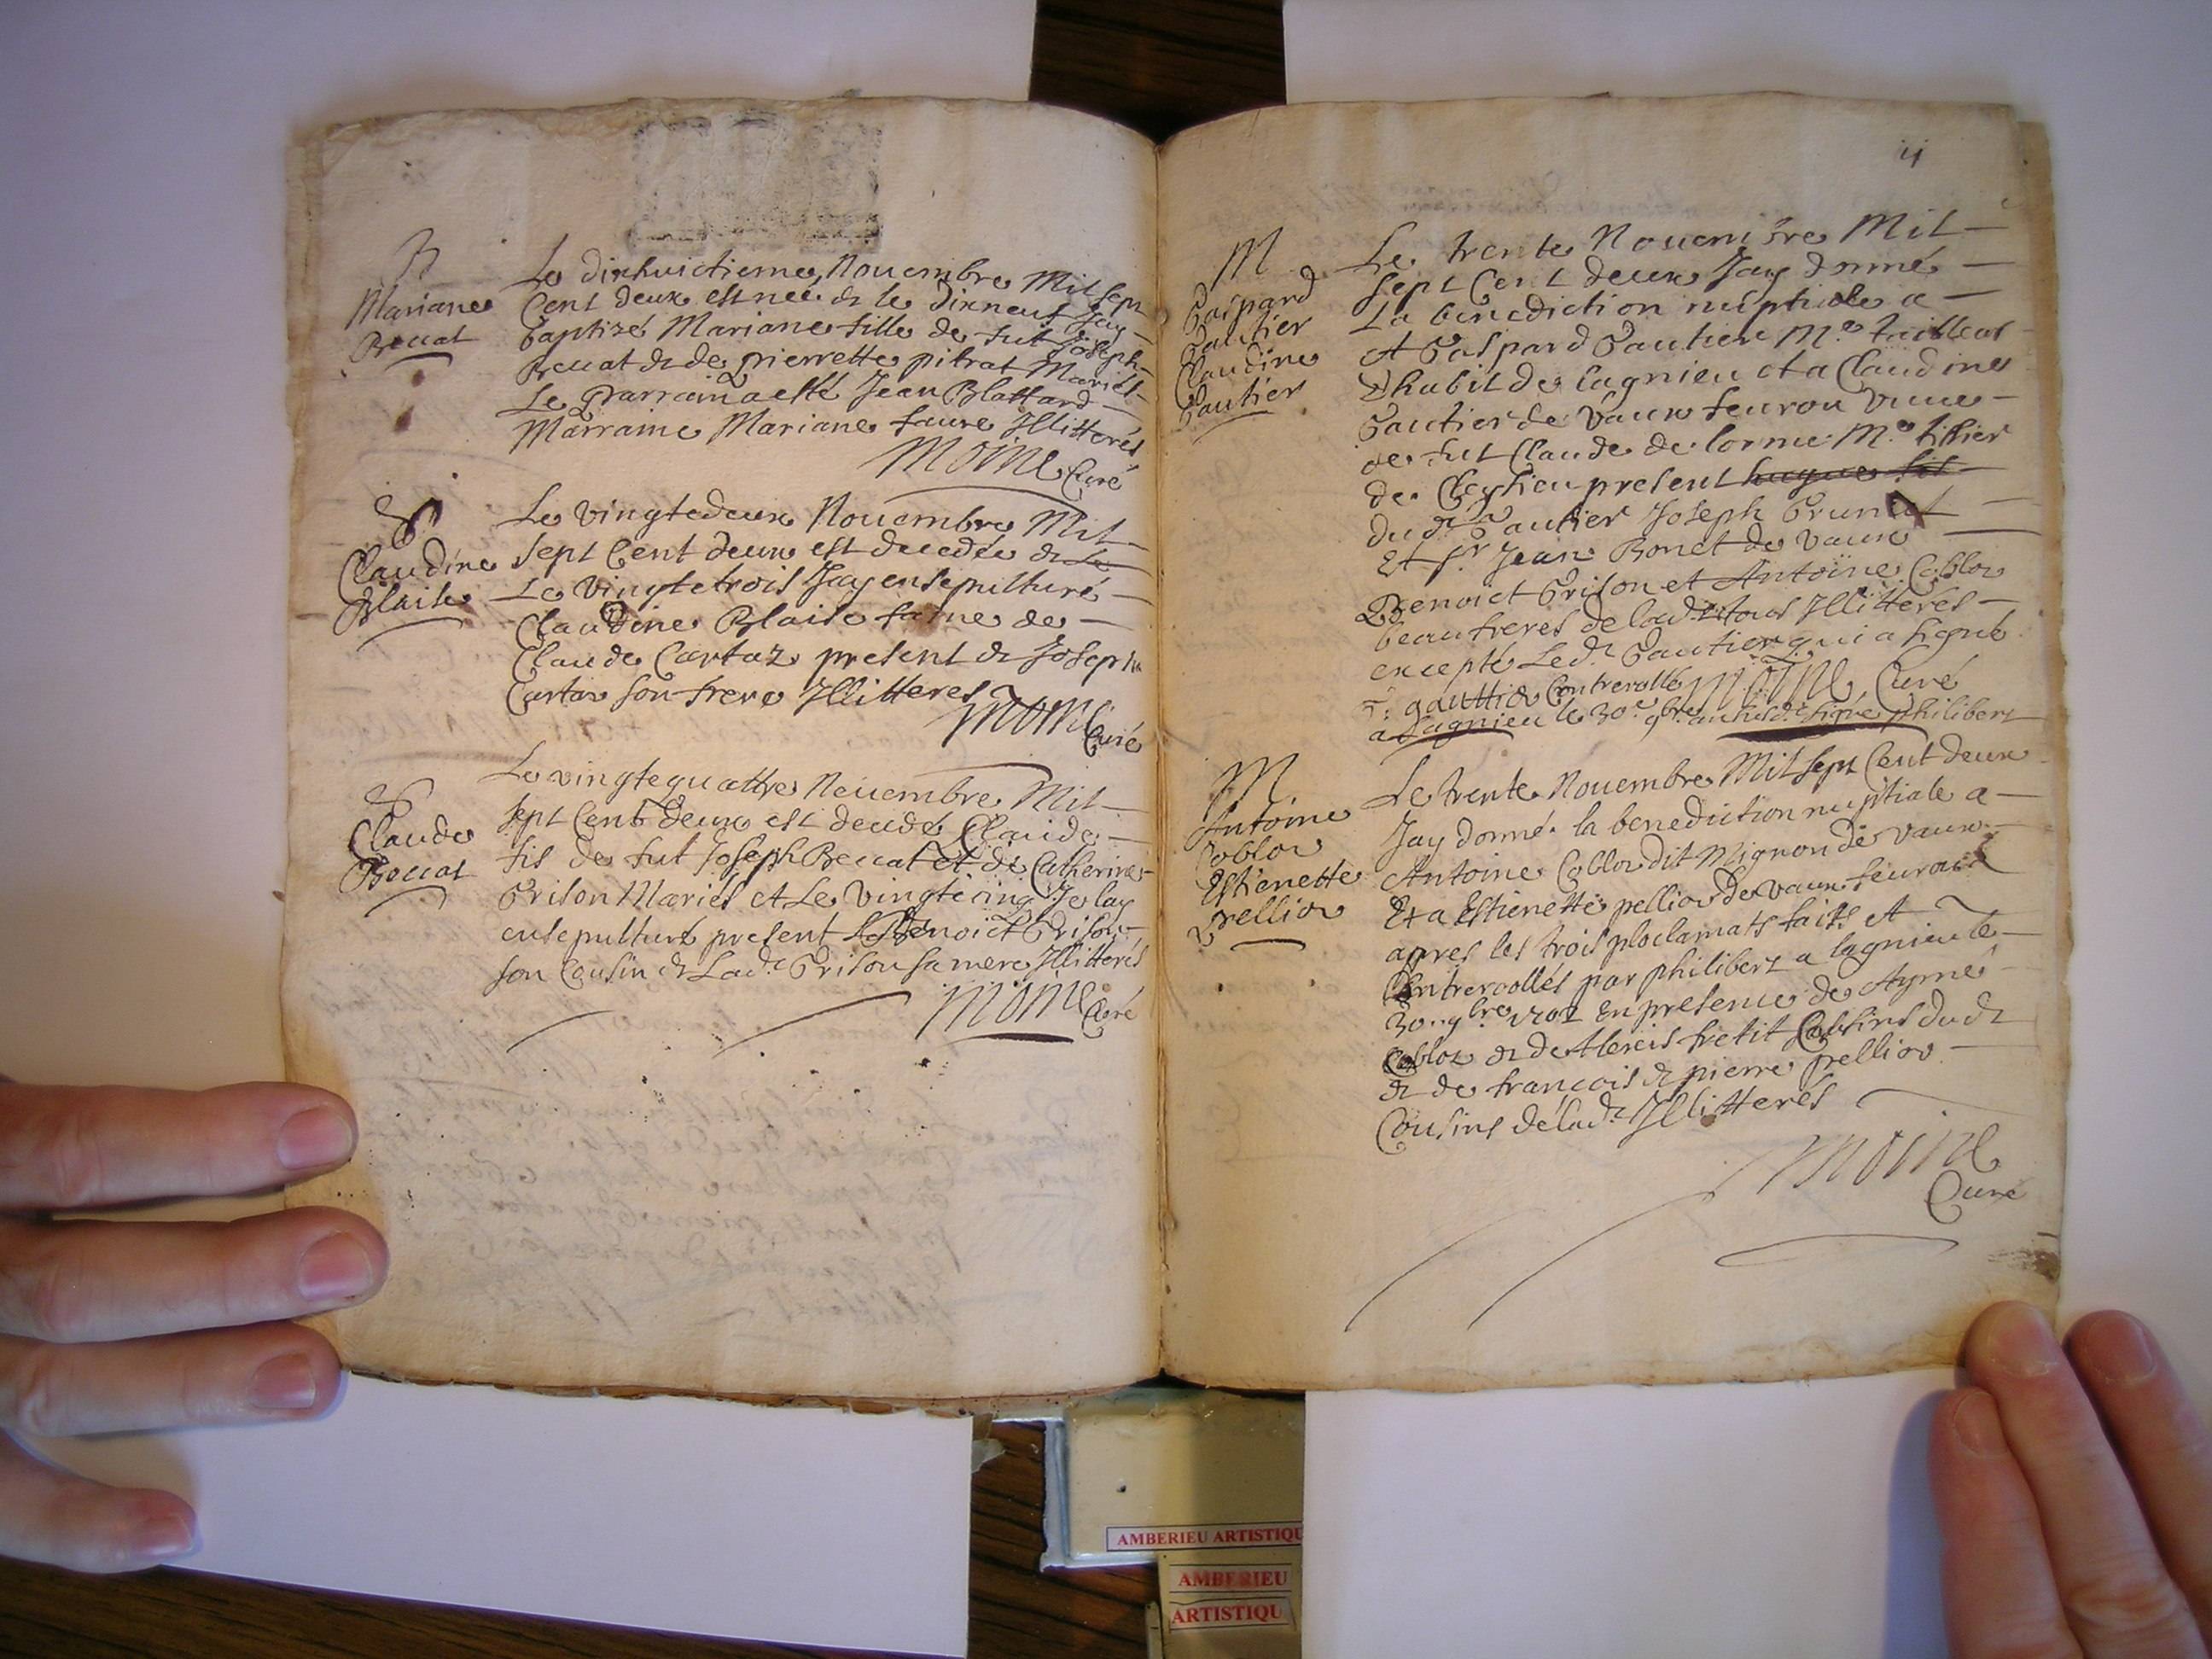 B
Mariane
Breuat
Le dixhuictieme Nouembre Mil sept
Cent deux est neé & le dixneuf Jay
baptizé Mariane fille de fut Joseph
Breuat & de pierrette pitrat Mariés
Le Parrain a esté Jean Blattard
Marraine Mariane faure Illitterés
Moine Curé
S
Claudine
Blaise
Le vingtedeux Nouembre Mil
sept Cent deux est decedée & Le
Le vingtetrois Jay ensepulturé
Claudine Blaise fame de
Claude Cartaz present & Joseph
Cartaz son frere Illitteres
Moine Curé
S
Claude
Le vingtequattre Nouembre Mil
sept Cent deux est decedé Claude
fis de fut Joseph Breuat et de Catherine
Grison Mariés et Le vingtecinq Je lay
ensepulturé present Benoict Grison
son Cousin & Lad.e Grison sa mere Illitterés
Moine Curé
M
Gaspard
Gautier
Claudine
Gautier
Le trente Nouembre Mil
sept Cent deux Jay donné
La benediction nuptiale a
et Gaspard Gautier M.e tailleur
dhabit de Lagnieu et a Claudine
Gautier de Vaux feurou vuue
de fut Claude de lorme M.e tissier
de Cleysieu present hugue fis
dud.t Gautier Joseph Brunet
Et Sr Jean Bonet de Vaux
Benoict Grison et Antoine Cobloz
beaufreres de lad.e tous Illitterés
excepté Led.t Gautier qui a signé
gauttier Controllé Moine Curé
a Lagnieu le 30.e 9bre signé philibert
M
Antoine
Cobloz
Estienette
pellioz
Le trente Nouembre Mil sept Cent deux
Jay donné la benediction nuptiale a
Antoine Cobloz dit Mignon de Vaux
Et a Estienette pellioz de Vaux feurou
apres les trois ploclamats faits et
Contreroollés par philibert a lagnieu le
30. 9bre 1702 En presence de Aymé
Cobloz & de Alexis fretit Cousins dud.t
& de françois & pierre pellioz
Cousins de lad.e Illitterés
Moine
Curé
AMBERIEU ARTISTIQU
AMBERIEU
ARTISTIQU